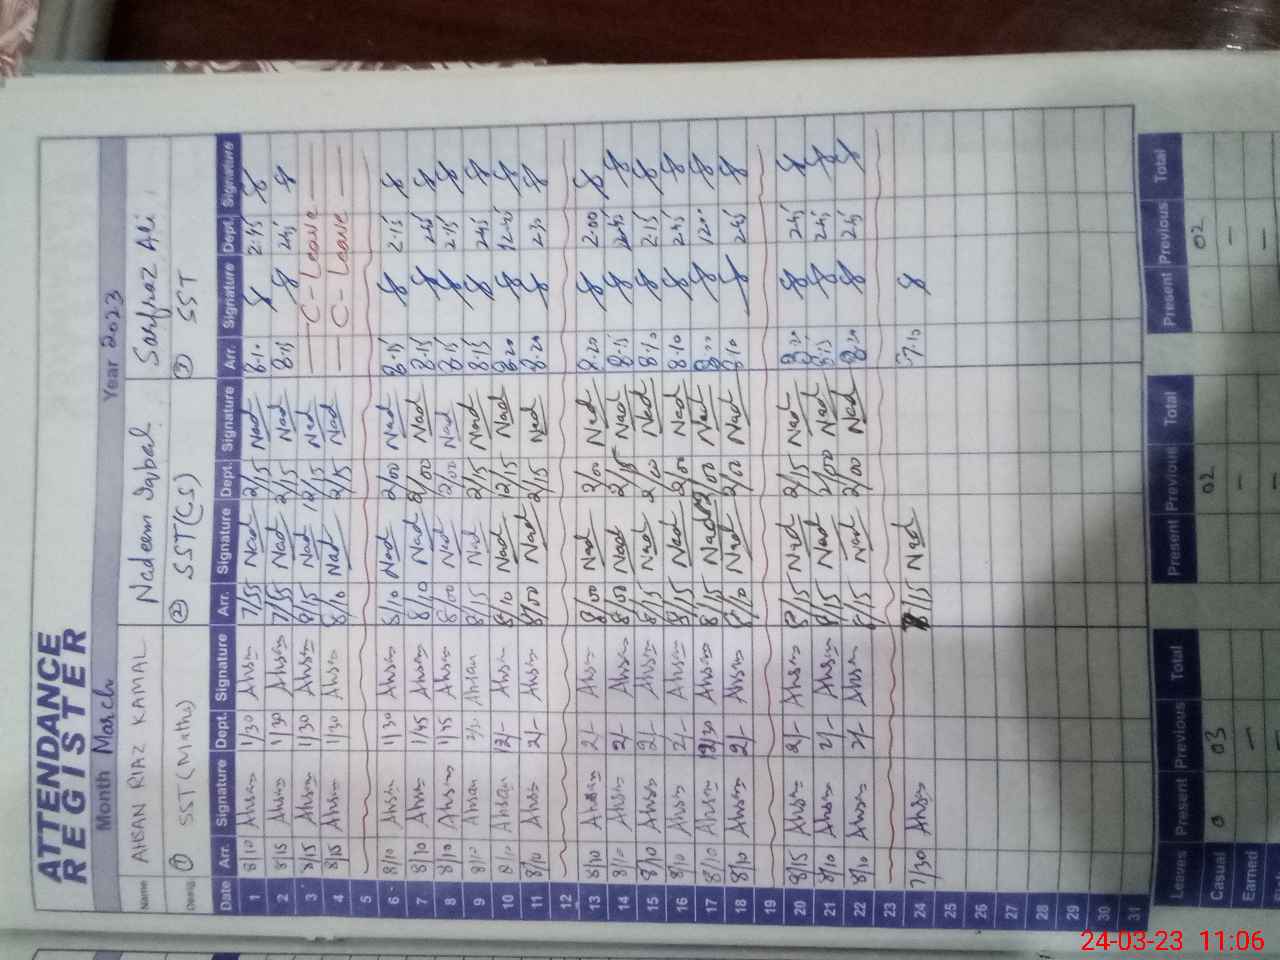 ATTENDANCE
REGISTER
Month March Year 2023
Name AHSAN RIAZ KAMAL Nadeem Iqbal Sarfraz Ali
Desig. ① SST (Maths) ② SST(CS) ③ SST
Date Arr. Signature Dept. Signature Arr. Signature Dept. Signature Arr. Signature Dept. Signature
1 8/10 Ahsan 1/30 Ahsan 7/55 Nad 2/15 Nad 8.10 2.45
2 8/15 Ahsan 1/30 Ahsan 7/55 Nad 2/15 Nad 8.15 2.45
3 8/15 Ahsan 1/30 Ahsan 8/15 Nad 12/15 Nad C-Leave
4 8/15 Ahsan 1/30 Ahsan 8/10 Nad 2/15 Nad C-Leave
5
6 8/10 Ahsan 1/30 Ahsan 8/10 Nad 2/00 Nad 8.15 2.15
7 8/10 Ahsan 1/45 Ahsan 8/10 Nad 2/00 Nad 8.15 2.45
8 8/10 Ahsan 1/45 Ahsan 8/00 Nad 2/00 Nad 8.15 2.15
9 8/10 Ahsan 2/- Ahsan 8/15 Nad 2/15 Nad 8.15 2.45
10 8/10 Ahsan 12/- Ahsan 8/10 Nad 12/15 Nad 8.20 12.45
11 8/10 Ahsan 2/- Ahsan 8/00 Nad 2/15 Nad 8.20 2.30
12
13 8/10 Ahsan 2/- Ahsan 8/00 Nad 2/00 Nad 8.20 2.00
14 8/10 Ahsan 2/- Ahsan 8/00 Nad 2/15 Nad 8.15 2.45
15 8/10 Ahsan 2/- Ahsan 8/15 Nad 2/00 Nad 8.10 2.15
16 8/10 Ahsan 2/- Ahsan 8/15 Nad 2/00 Nad 8.10 2.45
17 8/10 Ahsan 12/30 Ahsan 8/15 Nad 12/00 Nad 12.00
18 8/10 Ahsan 2/- Ahsan 8/10 Nad 2/00 Nad 8.10 2.45
19
20 8/15 Ahsan 2/- Ahsan 8/15 Nad 2/15 Nad 8.20 2.45
21 8/10 Ahsan 2/- Ahsan 8/15 Nad 2/00 Nad 8.15 2.45
22 8/10 Ahsan 2/- Ahsan 8/15 Nad 2/00 Nad 8.20 2.45
23
24 7/30 Ahsan 8/15 Nad 7.10
25
26
27
28
29
30
31
Leaves Present Previous Total Present Previous Total Present Previous Total
Casual 0 03 02 02
Earned - - -
24-03-23 11:06